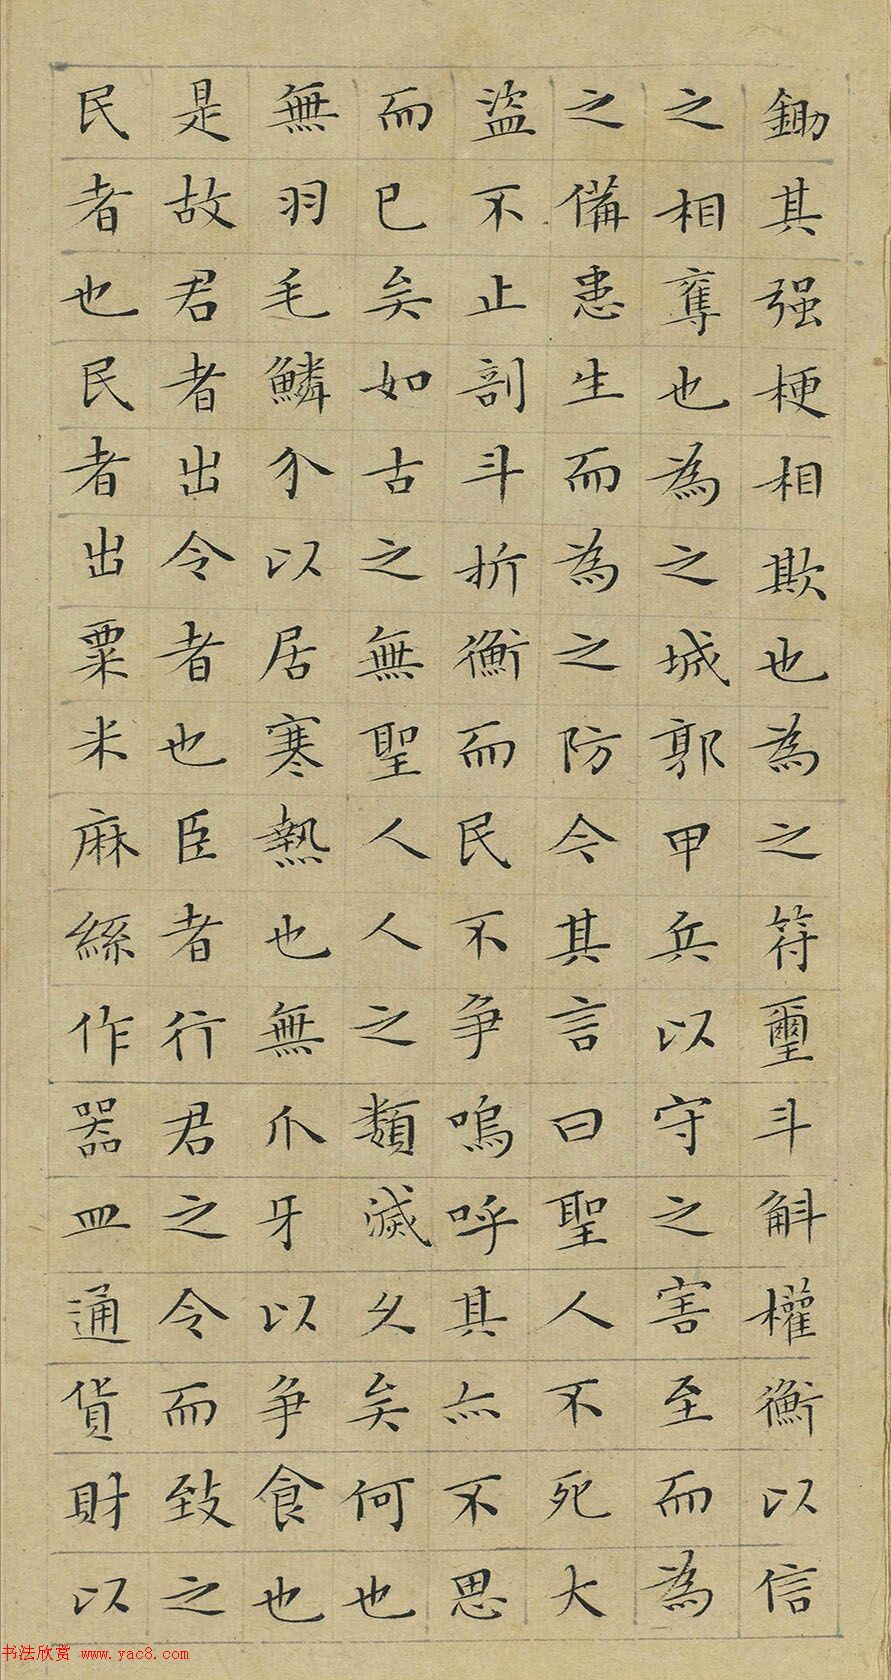 鋤其强梗相欺也為之符璽斗斛權衡以信
之相奪也為之城郭甲兵以守之害至而為
之備患生而為之防今其言曰聖人不死大
盜不止剖斗折衡而民不爭嗚呼其亦不思
而已矣如古之無聖人人之類滅久矣何也
無羽毛鱗介以居寒熱也無爪牙以爭食也
是故君者出令者也臣者行君之令而致之
民者也民者出粟米麻絲作器皿通貨財以
书法欣赏 www.yac8.com